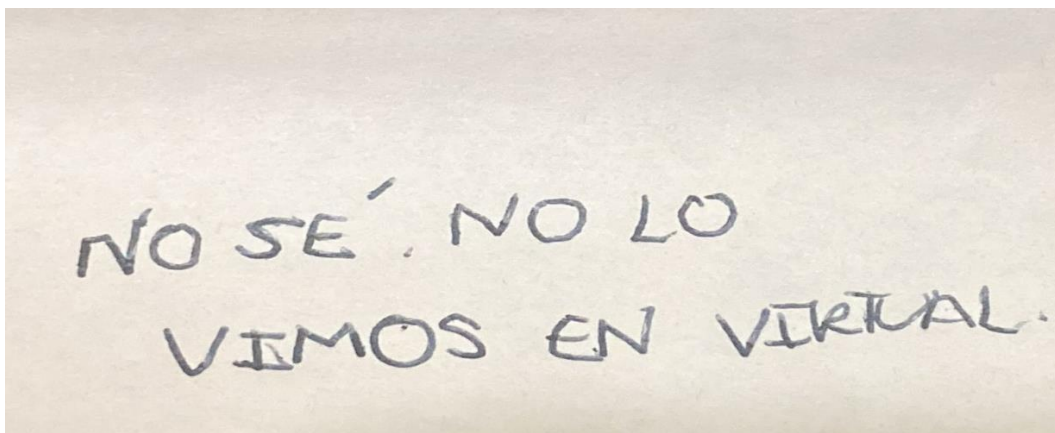 NO SÉ. NO LO
VIMOS EN VIRTUAL.